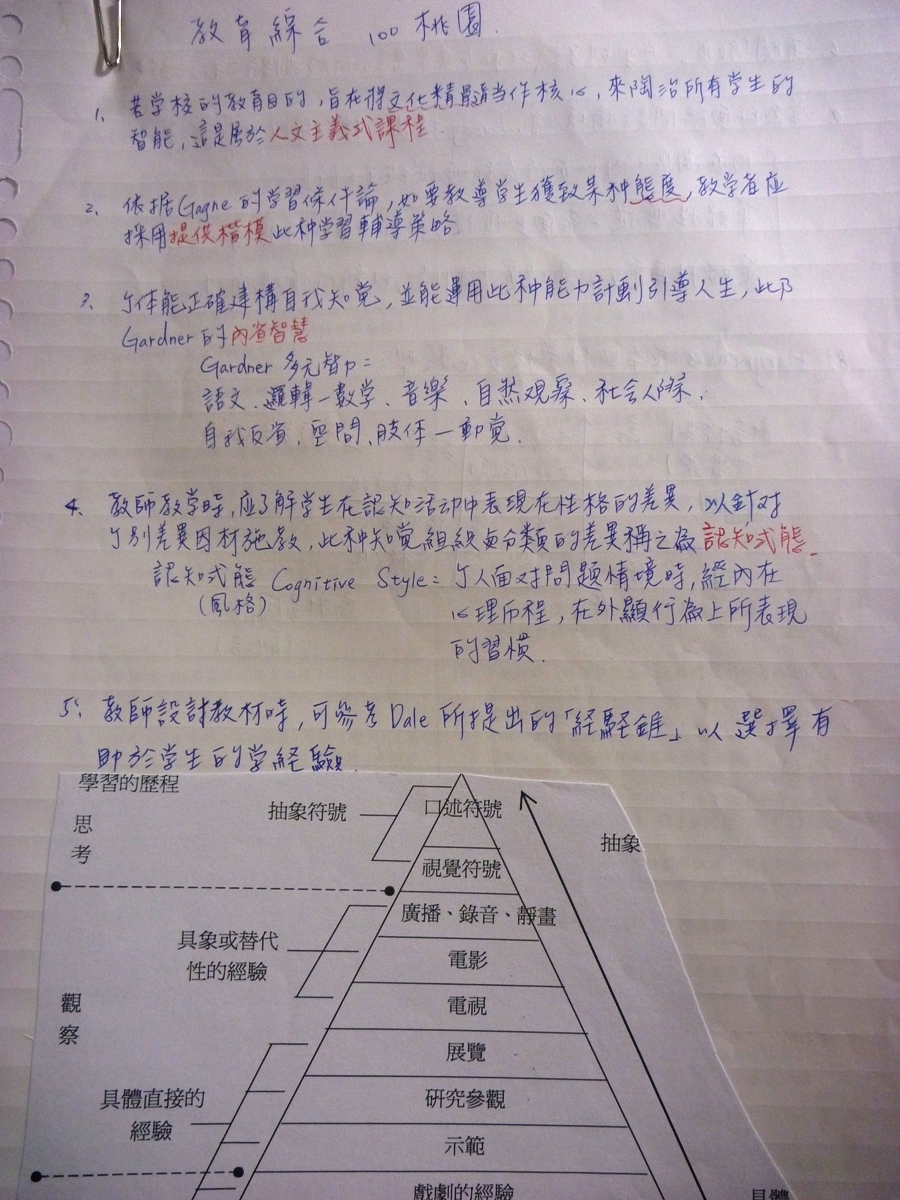 教育綜合 100 桃園.
1. 若学校的教育目的，旨在將文化精髓當作核心，來陶冶所有学生的
智能，這是屬於人文主義式課程.
2. 依据Gagne的学習條件論，如要教導学生獲致某种態度，教学者应
採用提供楷模此种学習輔導策略.
3. 个体能正確建構自我知覚，並能運用此种能力計劃引導人生，此乃
Gardner的內省智慧
Gardner 多元智力=
語文、邏輯－數学、音樂、自然观察、社会人際、
自我反省、空間、肢体－動覚.
4. 教師教学時，应了解学生在認知活动中表現在性格的差異，以針对
个別差異因材施教，此种知覚組織与分類的差異稱之為認知式態.
認知式態 Cognitive Style= 个人面对問題情境時，經內在
(風格)
心理历程，在外顯行為上所表現
的習慣.
5. 教師設計教材時，可參考Dale所提出的「経驗錐」以選擇有
助於学生的学経驗.
學習的歷程
抽象符號
口述符號
思考
抽象
視覺符號
廣播、錄音、靜畫
具象或替代
性的經驗
電影
觀察
電視
展覽
具體直接的
經驗
研究參觀
示範
戲劇的經驗
具體